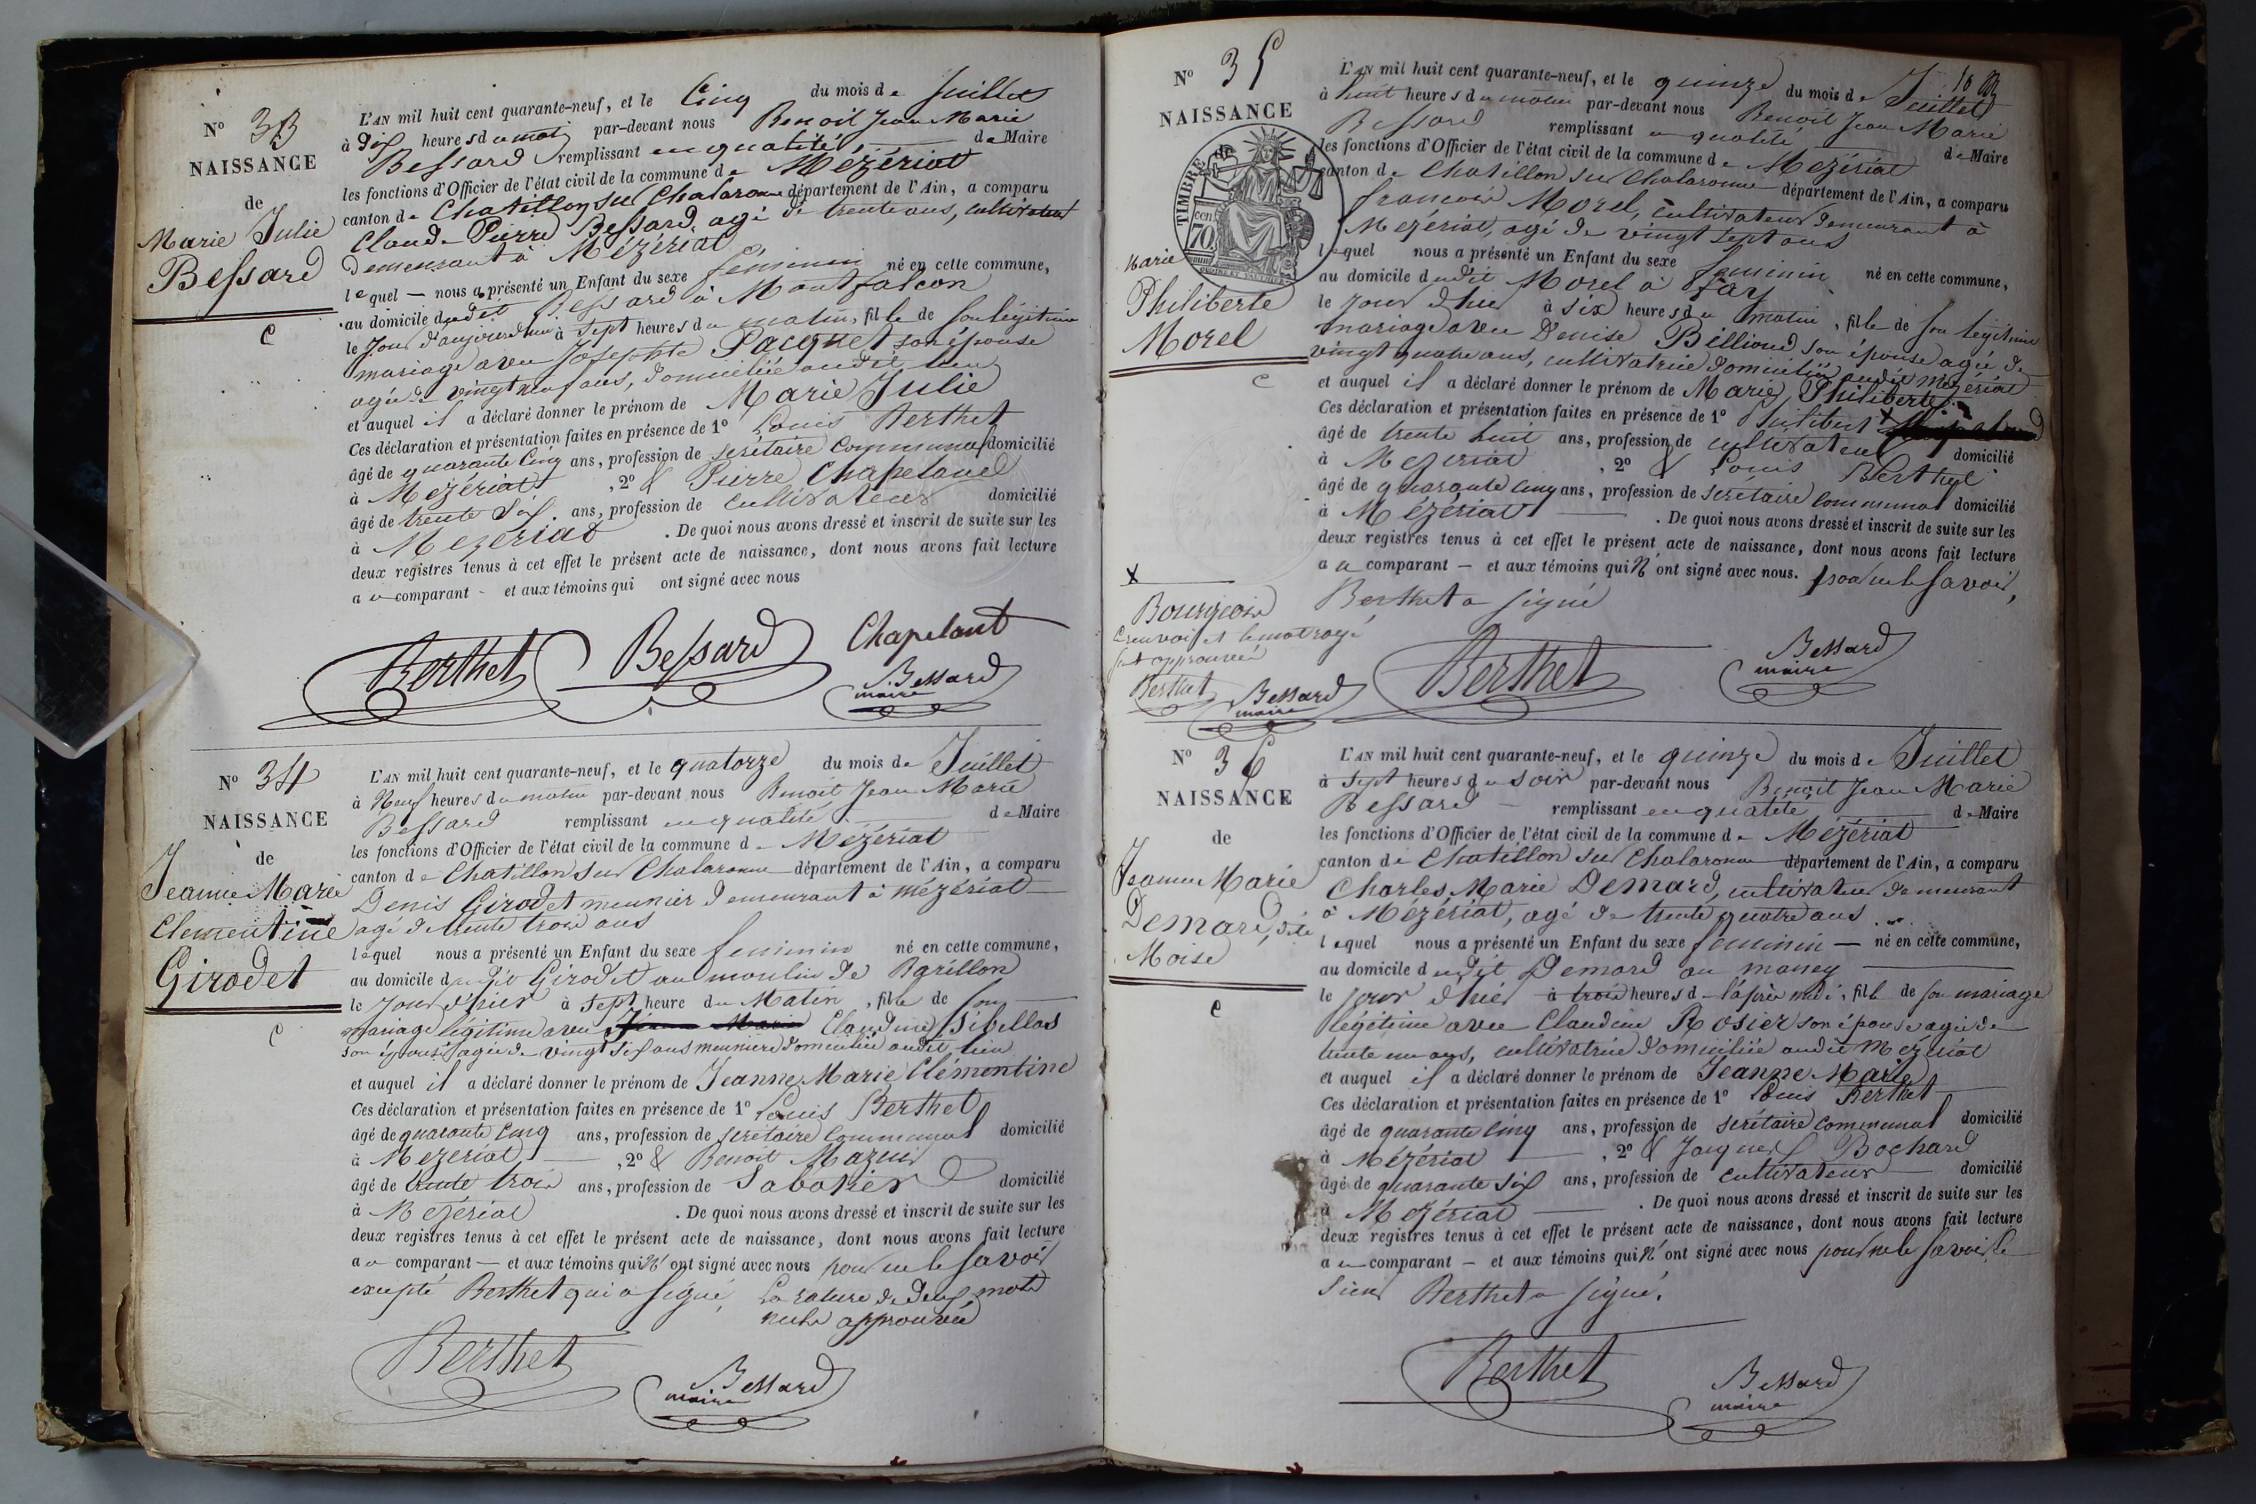 N° 33
NAISSANCE
de
Marie Julie
Bessard
C
L'AN mil huit cent quarante-neuf, et le Cinq du mois de Juillet
à Dix heures du matin par-devant nous Benoit Jean Marie
Bessard remplissant en qualité de Maire
les fonctions d'Officier de l'état civil de la commune de Mézériat
canton de Chatillon sur Chalaronne département de l'Ain, a comparu
Claude Pierre Bessard, agé de trente ans, cultivateur
demeurant à Mézériat
lequel — nous a présenté un Enfant du sexe féminin né en cette commune,
au domicile dudit Bessard à Montfalcon
le jour d'aujourd'hui à sept heures du matin, fille de son légitime
mariage avec Josephte Pacquet son épouse
agée de vingt neuf ans, domiciliée audit lieu
et auquel il a déclaré donner le prénom de Marie Julie
Ces déclaration et présentation faites en présence de 1° Louis Berthet
âgé de quarante Cinq ans, profession de secrétaire communal domicilié
à Mézériat , 2° & Pierre Chapeland
âgé de trente six ans, profession de cultivateur domicilié
à Mézériat . De quoi nous avons dressé et inscrit de suite sur les
deux registres tenus à cet effet le présent acte de naissance, dont nous avons fait lecture
au comparant - et aux témoins qui ont signé avec nous
Berthet Bessard Chapelant
Bessard
maire
N° 34
NAISSANCE
de
Jeanne Marie
Clementine
Girodet
C
L'AN mil huit cent quarante-neuf, et le quatorze du mois de Juillet
à Neuf heures du matin par-devant nous Benoit Jean Marie
Bessard remplissant en qualité de Maire
les fonctions d'Officier de l'état civil de la commune de Mézériat
canton de Chatillon sur Chalaronne département de l'Ain, a comparu
Denis Girodet meunier demeurant à Mézériat
agé de trente trois ans
lequel nous a présenté un Enfant du sexe féminin né en cette commune,
au domicile dudit Girodet au moulin de Barillon
le jour d'hier à sept heure du Matin , fille de son
mariage légitime avec Jeanne Marie Claudine Sibellas
son épouse agée de vingt six ans meunière domiciliée audit lieu
et auquel il a déclaré donner le prénom de Jeanne Marie Clémentine
Ces déclaration et présentation faites en présence de 1° Louis Berthet
âgé de quarante cinq ans, profession de secrétaire communal domicilié
à Mézériat , 2° & Benoit Mazuir
âgé de trente trois ans, profession de Sabotier domicilié
à Mézériat . De quoi nous avons dressé et inscrit de suite sur les
deux registres tenus à cet effet le présent acte de naissance, dont nous avons fait lecture
au comparant — et aux témoins qui N' ont signé avec nous pour ne le savoir
excepté Berthet qui a signé, La rature de deux mots
nuls approuvée
Berthet
Bessard
maire
10
N° 35
NAISSANCE
de
TIMBRE
70 cent
Marie
Philiberte
Morel
C
L'AN mil huit cent quarante-neuf, et le quinze du mois de Juillet
à huit heures du matin par-devant nous Benoit Jean Marie
Bessard remplissant en qualité de Maire
les fonctions d'Officier de l'état civil de la commune de Mézériat
canton de Chatillon sur Chalaronne département de l'Ain, a comparu
francois Morel, cultivateur demeurant à
Mézériat, agé de vingt sept ans
lequel nous a présenté un Enfant du sexe féminin né en cette commune,
au domicile dudit Morel à Fay
le jour d'hier à six heures du matin , fille de son légitime
mariage avec Denise Billioud son épouse agée de
vingt quatre ans, cultivatrice domiciliée audit Mézériat
et auquel il a déclaré donner le prénom de Marie Philiberte
Ces déclaration et présentation faites en présence de 1° Philibert x
âgé de trente huit ans, profession de cultivateur domicilié
à Mézériat , 2° & Louis Berthet
âgé de quarante cinq ans, profession de secrétaire communal domicilié
à Mézériat . De quoi nous avons dressé et inscrit de suite sur les
deux registres tenus à cet effet le présent acte de naissance, dont nous avons fait lecture
au comparant — et aux témoins qui N' ont signé avec nous. pour ne le savoir,
Berthet a signé
x
Bourgeois
Ce renvoi et le mot rayé
sont approuvés
Berthet Bessard
maire
Berthet
Bessard
maire
N° 36
NAISSANCE
de
Jeanne Marie
Demard, dite
Moise
C
L'AN mil huit cent quarante-neuf, et le quinze du mois de Juillet
à sept heures du soir par-devant nous Benoit Jean Marie
Bessard remplissant en qualité de Maire
les fonctions d'Officier de l'état civil de la commune de Mézériat
canton de Chatillon sur Chalaronne département de l'Ain, a comparu
Charles Marie Demard, cultivateur demeurant
à Mézériat, agé de trente quatre ans
lequel nous a présenté un Enfant du sexe féminin — né en cette commune,
au domicile dudit Demard au maney
le jour d'hier à trois heures de l'après midi, fille de son mariage
légitime avec Claudine Rosier son épouse agée de
trente un ans, cultivatrice domiciliée audit Mézériat
et auquel il a déclaré donner le prénom de Jeanne Marie
Ces déclaration et présentation faites en présence de 1° Louis Berthet
âgé de quarante cinq ans, profession de secrétaire communal domicilié
à Mézériat , 2° & Jacques Bochard
âgé de quarante six ans, profession de cultivateur domicilié
à Mézériat . De quoi nous avons dressé et inscrit de suite sur les
deux registres tenus à cet effet le présent acte de naissance, dont nous avons fait lecture
au comparant — et aux témoins qui N' ont signé avec nous pour ne le savoir, le
sieur Berthet a signé.
Berthet
Bessard
maire